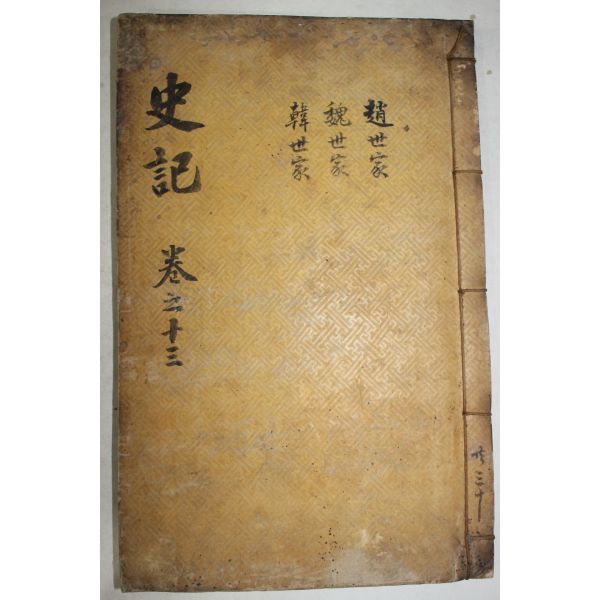 史記 卷之十三
趙世家
魏世家
韓世家
共三十